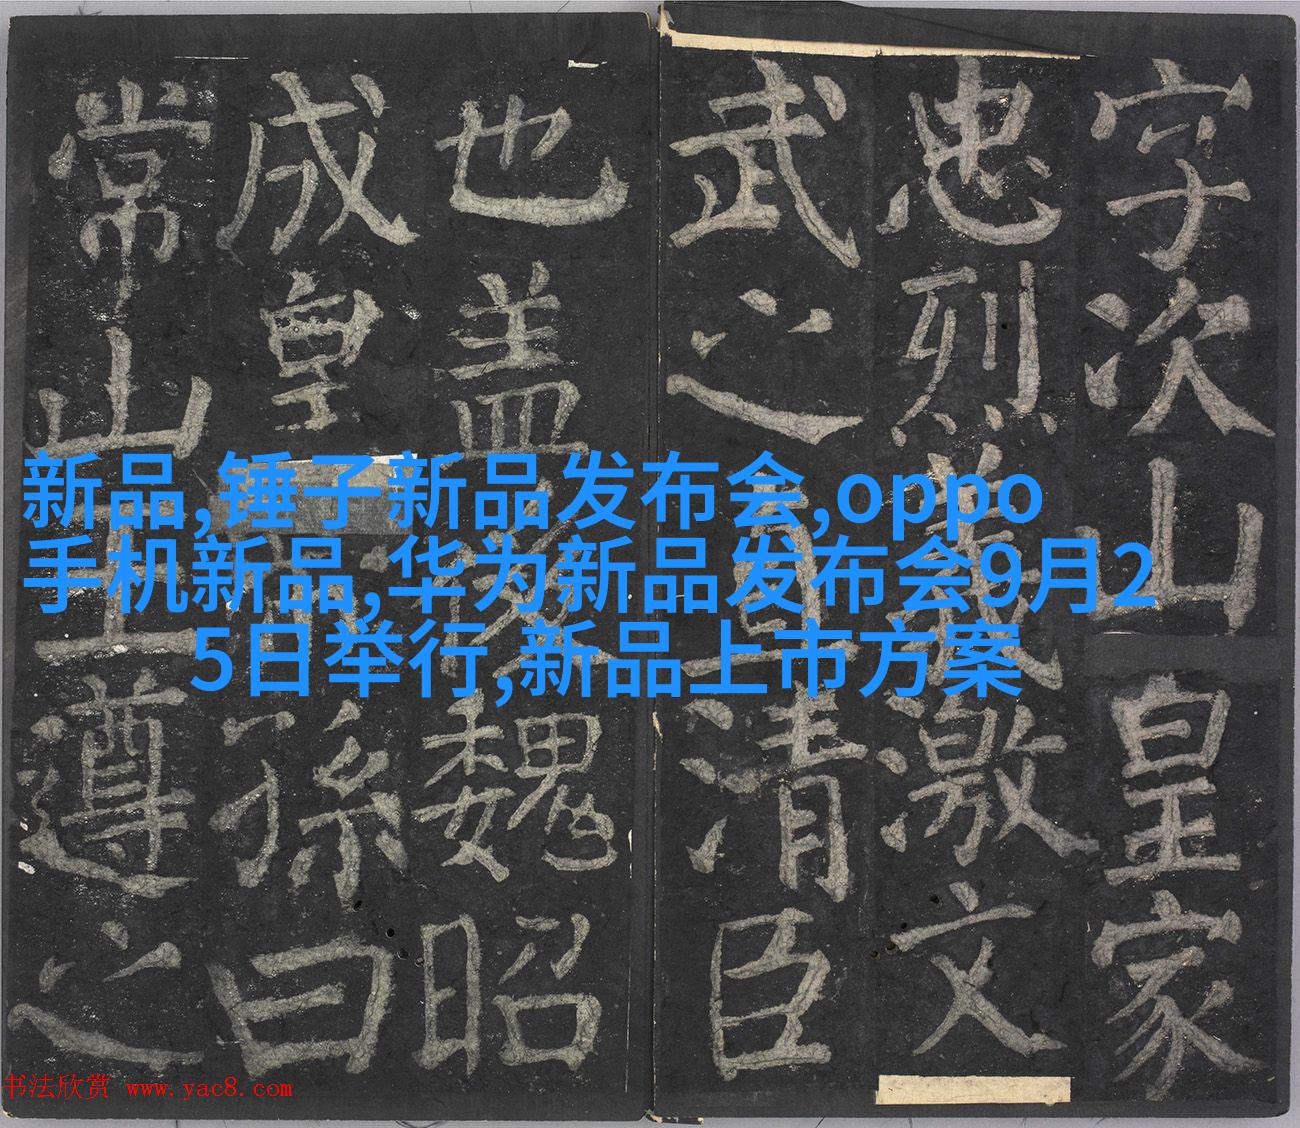 字次山皇家
忠烈義激文
武之直清臣
也盖後魏昭
成皇孫曰
常山王遵之
新品,锤子新品发布会,oppo
手机新品,华为新品发布会9月2
5日举行,新品上市方案
书法欣赏 www.yac8.com